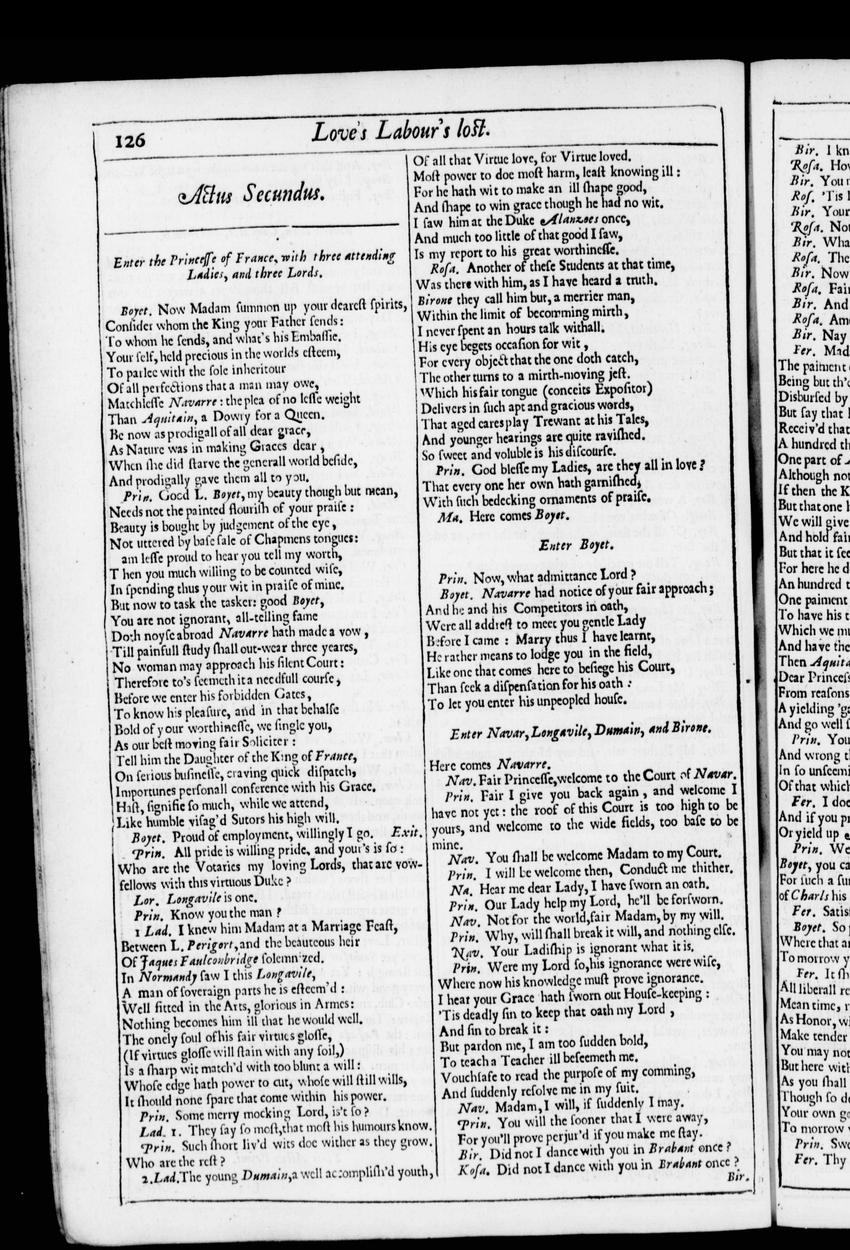 126
Love's Labour's lost.
Actus Secundus.
Enter the Princesse of France, with three attending
Ladies, and three Lords.
Boyet. Now Madam summon up your dearest spirits,
Consider whom the King your Father sends:
To whom he sends, and what's his Embassie.
Your self, held precious in the worlds esteem,
To parlee with the sole inheritour
Of all perfections that a man may owe,
Matchlesse Navarre: the plea of no lesse weight
Than Aquitain, a Dowry for a Queen.
Be now as prodigall of all dear grace,
As Nature was in making Graces dear,
When she did starve the generall world beside,
And prodigally gave them all to you.
Prin. Good L. Boyet, my beauty though but mean,
Needs not the painted flourish of your praise:
Beauty is bought by judgement of the eye,
Not uttered by base sale of Chapmens tongues:
am lesse proud to hear you tell my worth,
Then you much willing to be counted wise,
In spending thus your wit in praise of mine.
But now to task the tasker: good Boyet,
You are not ignorant, all-telling fame
Doth noyse abroad Navarre hath made a vow,
Till painfull study shall out-wear three yeares,
No woman may approach his silent Court:
Therefore to's seemeth it a needfull course,
Before we enter his forbidden Gates,
To know his pleasure, and in that behalfe
Bold of your worthinesse, we single you,
As our best moving fair Soliciter:
Tell him the Daughter of the King of France,
On serious businesse, craving quick dispatch,
Importunes personall conference with his Grace.
Hast, signifie so much, while we attend,
Like humble visag'd Sutors his high will.
Boyet. Proud of employment, willingly I go. Exit.
Prin. All pride is willing pride, and your's is so:
Who are the Votaries my loving Lords, that are vow-
fellows with this virtuous Duke?
Lor. Longavile is one.
Prin. Know you the man?
1 Lad. I knew him Madam at a Marriage Feast,
Between L. Perigort, and the beauteous heir
Of Jaques Faulconbridge solemnized.
In Normandy saw I this Longavile,
A man of soveraign parts he is esteem'd:
Well fitted in the Arts, glorious in Armes:
Nothing becomes him ill that he would well.
The onely soul of his fair virtues glosse,
(If virtues glosse will stain with any soil,)
Is a sharp wit match'd with too blunt a will:
Whose edge hath power to cut, whose will still wills,
It should none spare that come within his power.
Prin. Some merry mocking Lord, is't so?
Lad. 1. They say so most, that most his humours know.
Prin. Such short liv'd wits doe wither as they grow.
Who are the rest?
2. Lad. The young Dumain, a well accomplish'd youth,
Of all that Virtue love, for Virtue loved.
Most power to doe most harm, least knowing ill:
For he hath wit to make an ill shape good,
And shape to win grace though he had no wit.
I saw him at the Duke Alanzoes once,
And much too little of that good I saw,
Is my report to his great worthinesse.
Rosa. Another of these Students at that time,
Was there with him, as I have heard a truth.
Birone they call him but, a merrier man,
Within the limit of becomming mirth,
I never spent an hours talk withall.
His eye begets occasion for wit,
For every object that the one doth catch,
The other turns to a mirth-moving jest.
Which his fair tongue (conceits Expositor)
Delivers in such apt and gracious words,
That aged cares play Trewant at his Tales,
And younger hearings are quite ravished.
So sweet and voluble is his discourse.
Prin. God blesse my Ladies, are they all in love?
That every one her own hath garnished,
With such bedecking ornaments of praise.
Ma. Here comes Boyet.
Enter Boyet.
Prin. Now, what admittance Lord?
Boyet. Navarre had notice of your fair approach;
And he and his Competitors in oath,
Were all addrest to meet you gentle Lady
Before I came: Marry thus I have learnt,
He rather means to lodge you in the field,
Like one that comes here to besiege his Court,
Than seek a dispensation for his oath:
To let you enter his unpeopled house.
Enter Navar, Longavile, Dumain, and Birone.
Here comes Navarre.
Nav. Fair Princesse, welcome to the Court of Navar.
Prin. Fair I give you back again, and welcome I
have not yet: the roof of this Court is too high to be
yours, and welcome to the wide fields, too base to be
mine.
Nav. You shall be welcome Madam to my Court.
Prin. I will be welcome then, Conduct me thither.
Na. Hear me dear Lady, I have sworn an oath.
Prin. Our Lady help my Lord, he'll be forsworn.
Nav. Not for the world, fair Madam, by my will.
Prin. Why, will shall break it will, and nothing else.
Nav. Your Ladiship is ignorant what it is.
Prin. Were my Lord so, his ignorance were wise,
Where now his knowledge must prove ignorance.
I hear your Grace hath sworn out House-keeping:
'Tis deadly sin to keep that oath my Lord,
And sin to break it:
But pardon me, I am too sudden bold,
To teach a Teacher ill beseemeth me.
Vouchsafe to read the purpose of my comming,
And suddenly resolve me in my suit.
Nav. Madam, I will, if suddenly I may.
Prin. You will the sooner that I were away,
For you'll prove perjur'd if you make me stay.
Bir. Did not I dance with you in Brabant once?
Rosa. Did not I dance with you in Brabant once?
Bir.
Bir. I kn
Rosa. How
Bir. You
Ros. 'Tis
Bir. Your
Rosa. No
Bir. Wha
Rosa. The
Bir. Now
Rosa. Fai
Bir. And
Rosa. Am
Bir. Nay
Fer. Mad
The paiment
Being but th'
Disbursed by
But say that
Receiv'd that
A hundred th
One part of
Although not
If then the K
But that one
We will give
And hold fai
But that it see
For here he d
An hundred t
One paiment
To have his t
Which we mu
And have the
Then Aquita
Dear Princes
From reasons
A yielding 'g
And go well
Prin. You
And wrong t
In so unseemi
Of that which
Fer. I doe
And if you p
Or yield up
Prin. We
Boyet, you ca
For such a su
of Charls his
Fer. Satis
Boyet. So
Where that a
To morrow y
Fer. It sh
All liberall re
Mean time, r
As Honor, wi
Make tender
You may not
But here with
As you shall
Though so d
Your own g
To morrow
Prin. Swe
Fer. Thy